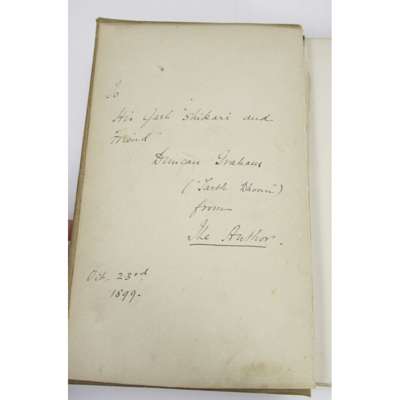 To
His "shikari and
Friend"
Duncan Graham
(
from
The Author.
Oct. 23rd
1899.